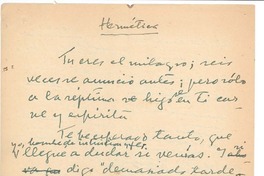 Hermética
Tu eres el milagro; seis
veces se anunció antes; pero sólo
a la séptima se hizo en ti car
ne y espíritu
Te he esperado tanto, que
yo, hombre de intuition y fe,
llegué a dudar si venías. Y
digo demasiado tarde